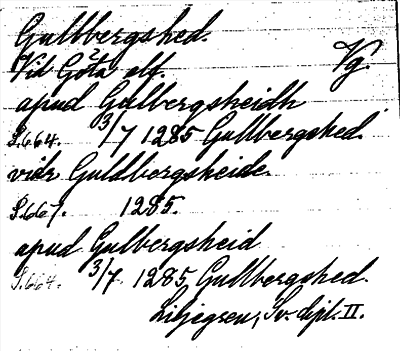 Gullbergshed.
Vid Göta elf. Vg.
apud Gulbergsheidh
S. 664. 3/7 1285 Gullbergshed.
vidr Guldborgsheide.
S. 667. 1285.
apud Gulbergsheid
S. 664. 3/7 1285, Gullbergshed.
Liljegren, Sv. dipl. II.